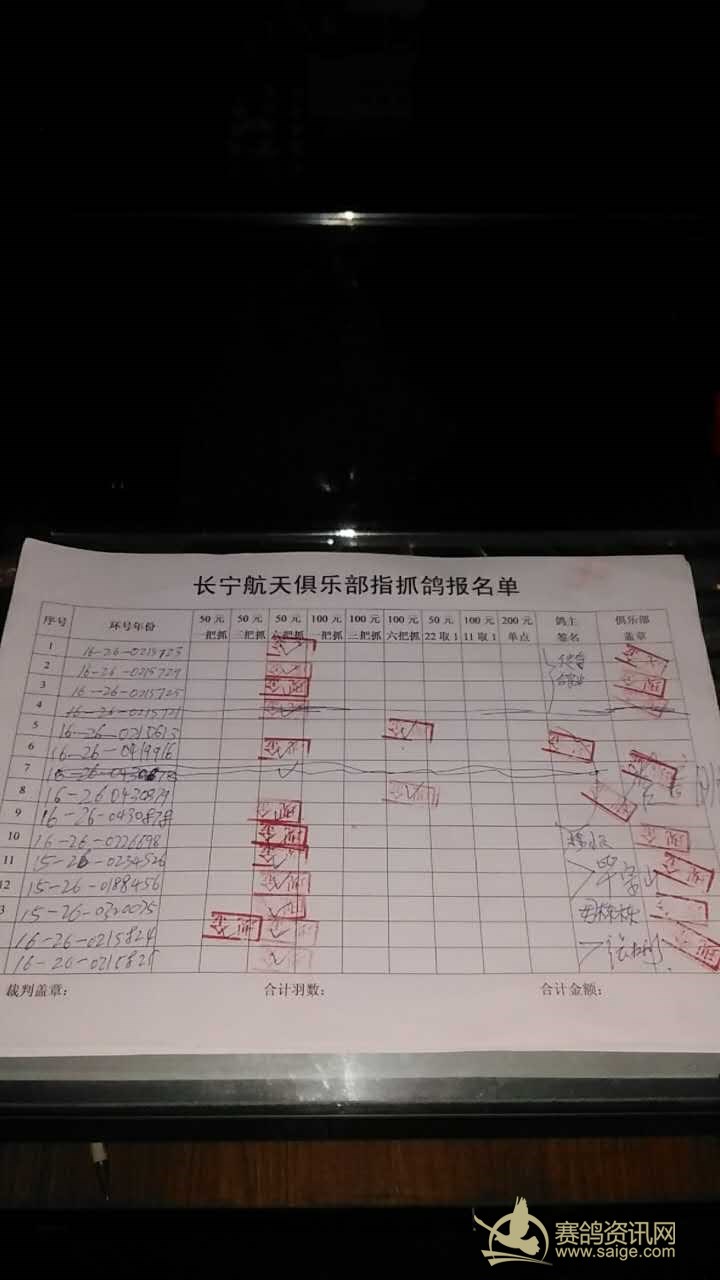 长宁航天俱乐部指抓鸽报名单
序号 环号年份 50元一把抓 50元二把抓 50元六把抓 100元一把抓 100元二把抓 100元六把抓 50元22取1 100元11取1 200元单点 鸽主签名 俱乐部盖章
1 16-26-0215723
2 16-26-0215729
3 16-26-0215725
4 16-26-0215721
5 16-26-0210613
6 16-26-0419916
7 16-26-04308
8 16-26 0430879
9 16-26-0430878
10 16-26-0226698
11 15-26-0234526
12 15-26-0188456
3 15-26-0320075
16-26-0215824
16-26-0215825
裁判盖章: 合计羽数: 合计金额:
赛鸽资讯网
www.saige.com